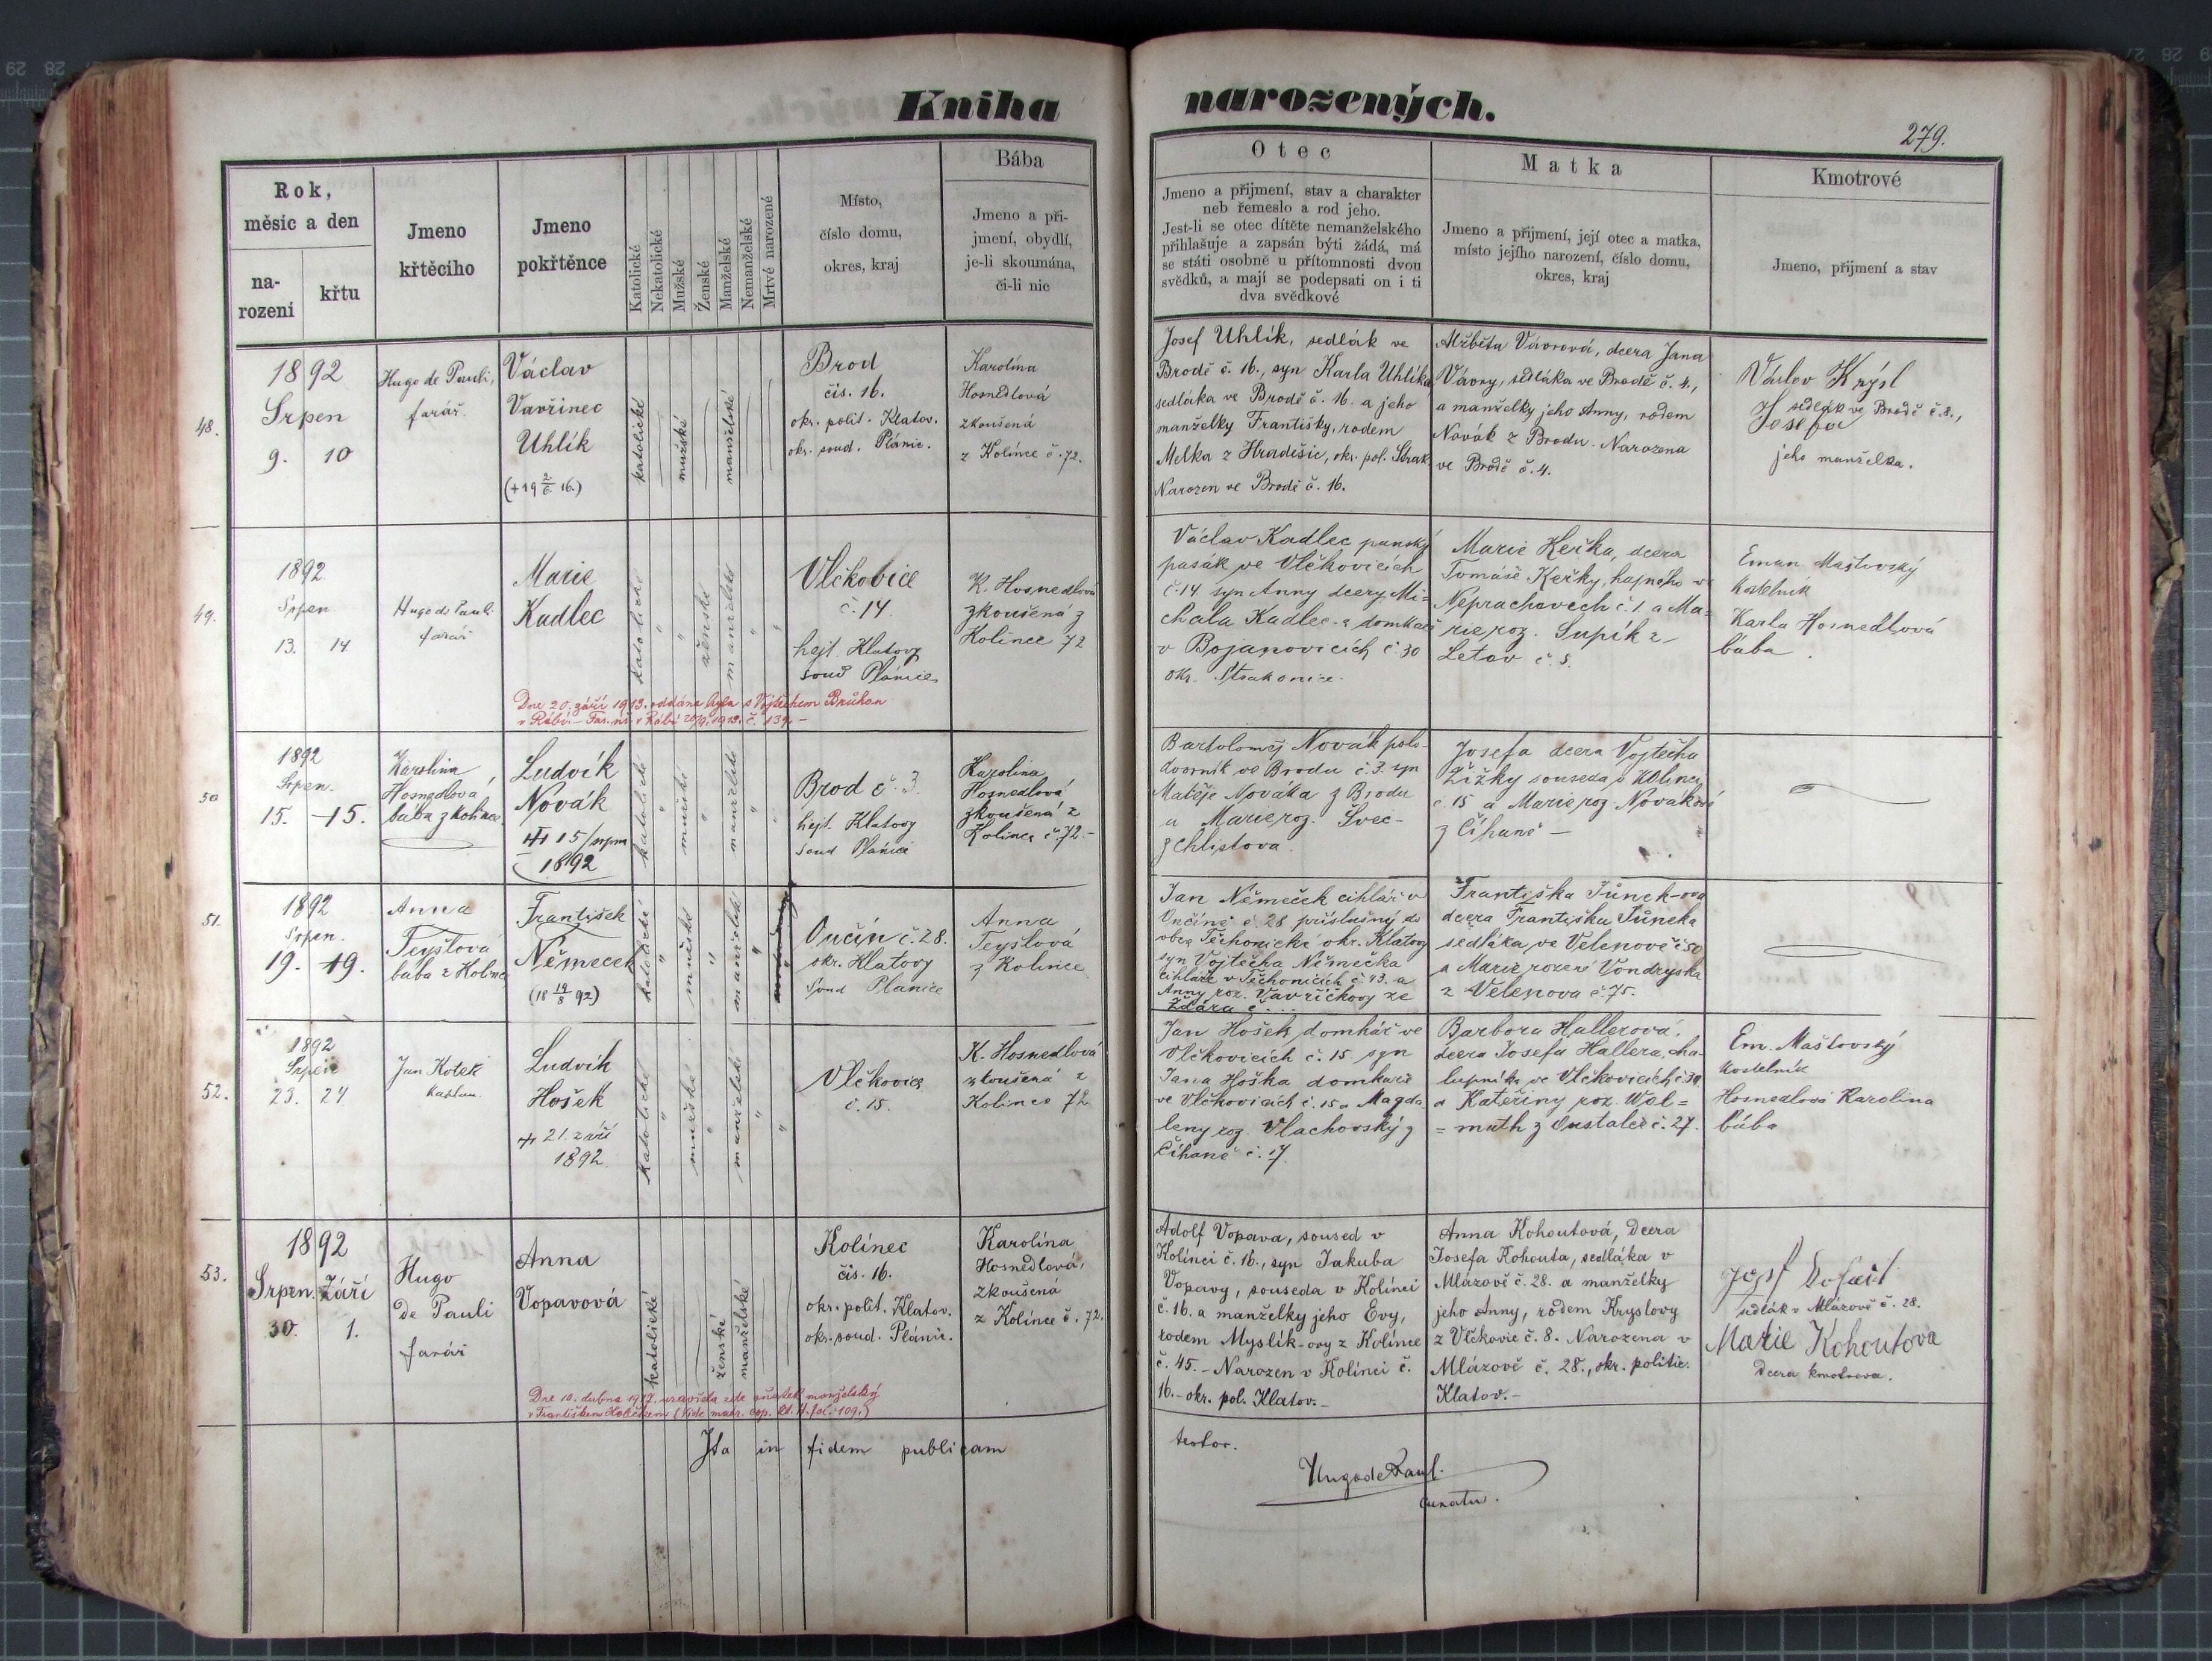 Kniha narozených.
279.
Rok,
měsíc a den
na-
rození
křtu
Jmeno
křtěcího
Jmeno
pokřtěnce
Katolické
Nekatolické
Mužské
Ženské
Manželské
Nemanželské
Mrtvé narozené
Místo,
číslo domu,
okres, kraj
Bába
Jmeno a při-
jmení, obydlí,
je-li skoumána,
či-li nic
Otec
Jmeno a přijmení, stav a charakter
neb řemeslo a rod jeho.
Jest-li se otec dítěte nemanželského
přihlašuje a zapsán býti žádá, má
se státi osobně u přítomnosti dvou
svědků, a mají se podepsati on i ti
dva svědkové
Matka
Jmeno a přijmení, její otec a matka,
místo jejího narození, číslo domu,
okres, kraj
Kmotrové
Jmeno, přijmení a stav
48.
1892
Srpen
9. 10
Hugo de Pauli,
farář.
Václav
Vavřinec
Uhlík
(+19 2/6. 16.)
katolické
mužské
manželské
Brod
čis. 16.
okr. polit. Klatov.
okr. soud. Plánic.
Karolína
Hosnedlová
zkoušená
z Kolince č. 72.
Josef Uhlík, sedlák ve
Brodě č. 16., syn Karla Uhlíka
sedláka ve Brodě č. 16. a jeho
manželky Františky, rodem
Melka z Hradešic, okr. pol. Strak.
Narozen ve Brodě č. 16.
Alžběta Vávrová, dcera Jana
Vávry, sedláka ve Brodě č. 4.,
a manželky jeho Anny, rodem
Novák z Brodu. Narozena
ve Brodě č. 4.
Václav Krýsl
sedlák ve Brodě č. 8.,
Josefa
jeho manželka.
49.
1892
Srpen
13. 14
Hugo de Pauli
farář
Marie
Kadlec
katolické
ženské
manželské
Vlčkovice
č. 14.
hejt. Klatovy
soud Plánice
K. Hosnedlová
zkoušená z
Kolince 72
Dne 20. září 1913. oddána byla s Vojtěchem Brůhou
v Rábí - Far. úř. v Rábí 20/9. 1913. č. 139. -
Václav Kadlec panský
pasák ve Vlčkovicích
č. 14 syn Anny dcery Mi=
chala Kadlec-a domkáře
v Bojanovicích č. 30
okr. Strakonice.
Marie Keřka, dcera
Tomáše Keřky, hajného v
Neprachovech č. 1. a Ma=
rie roz. Supík z
Letov č. 5.
Eman Maštovský
kostelník
Karla Hosnedlová
bába.
50
1892
Srpen.
15. -15.
Karolina
Hosnedlová,
bába z Kolince.
Ludvík
Novák
++ 15/srpna
1892
katolické
mužské
manželské
Brod č. 3.
hejt. Klatovy
soud Plánice
Karolina
Hosnedlová
zkoušená z
Kolince č. 72.-
Bartoloměj Novák polo-
dvorník ve Brodu č. 3. syn
Matěje Nováka z Brodu
a Marie roz. Švec-
z Chlistova.
Josefa dcera Vojtěcha
Žižky souseda v Kolinci
č. 15 a Marie roz. Novákové
z Číhaně -
51.
1892
Srpen.
19. 19.
Anna
Teyslová
bába z Kolince
František
Němeček
(18 19/8 92)
katolické
mužské
manželské
Ončín č. 28.
okr. Klatovy
soud Planice
Anna
Teyslová
z Kolince
Jan Němeček cihlář v
Ončíně č. 28 příslušný do
obce Těchonické okr. Klatovy
syn Vojtěcha Němečka
cihláře v Těchonicích č. 43. a
Anny roz. Vavříčkovy ze
Žďáru č. ...
Františka Tůnek-ova
dcera Františka Tůneka
sedláka ve Velenově č. 50
a Marie rozené Vondryska
z Velenova č. 75.
52.
1892
Srpen
23. 24
Jan Kotek
kaplan.
Ludvík
Hošek
++ 21. září
1892.
katolické
mužské
manželské
Vlčkovice
č. 15.
K. Hosnedlová
zkoušená z
Kolince 72
Jan Hošek, domkář ve
Vlčkovicích č. 15. syn
Jana Hoška domkáře
ve Vlčkovicích č. 15 a Magda
leny roz. Vlachovský z
Číhaně č. 17.
Barbora Hallerová,
dcera Josefa Hallera, cha-
lupníka ve Vlčkovicích č. 30
a Kateřiny roz. Wol=
=muth z Oustaleč č. 27.
Em. Maštovský
kostelník
Hosnedlová Karolina
bába
53.
1892
Srpen. Září
30. 1.
Hugo
de Pauli
farář
Anna
Vopavová
katolické
ženské
manželské
Kolínec
čis. 16.
okr. polit. Klatov.
okr. soud. Plánic.
Karolína
Hosnedlová,
zkoušená
z Kolince č. 72.
Dne 10. dubna 1917. uzavřela zde sňatek manželský
s Františkem Holečkem (Vide matr. cop. fol. 109.)
Adolf Vopava, soused v
Kolínci č. 16., syn Jakuba
Vopavy, souseda v Kolínci
č. 16. a manželky jeho Evy,
rodem Myslík-ovy z Kolínce
č. 45. - Narozen v Kolínci č.
16. - okr. pol. Klatov. -
Anna Kohoutová, dcera
Josefa Kohouta, sedláka v
Mlázově č. 28. a manželky
jeho Anny, rodem Kryslovy
z Vlčkovic č. 8. Narozena v
Mlázově č. 28., okr. politic.
Klatov. -
Josef Kohout
sedlák v Mlázově č. 28.
Marie Kohoutova
dcera kmotrova.
Ita in fidem publicam testor.
Hugo de Pauli
curatus.